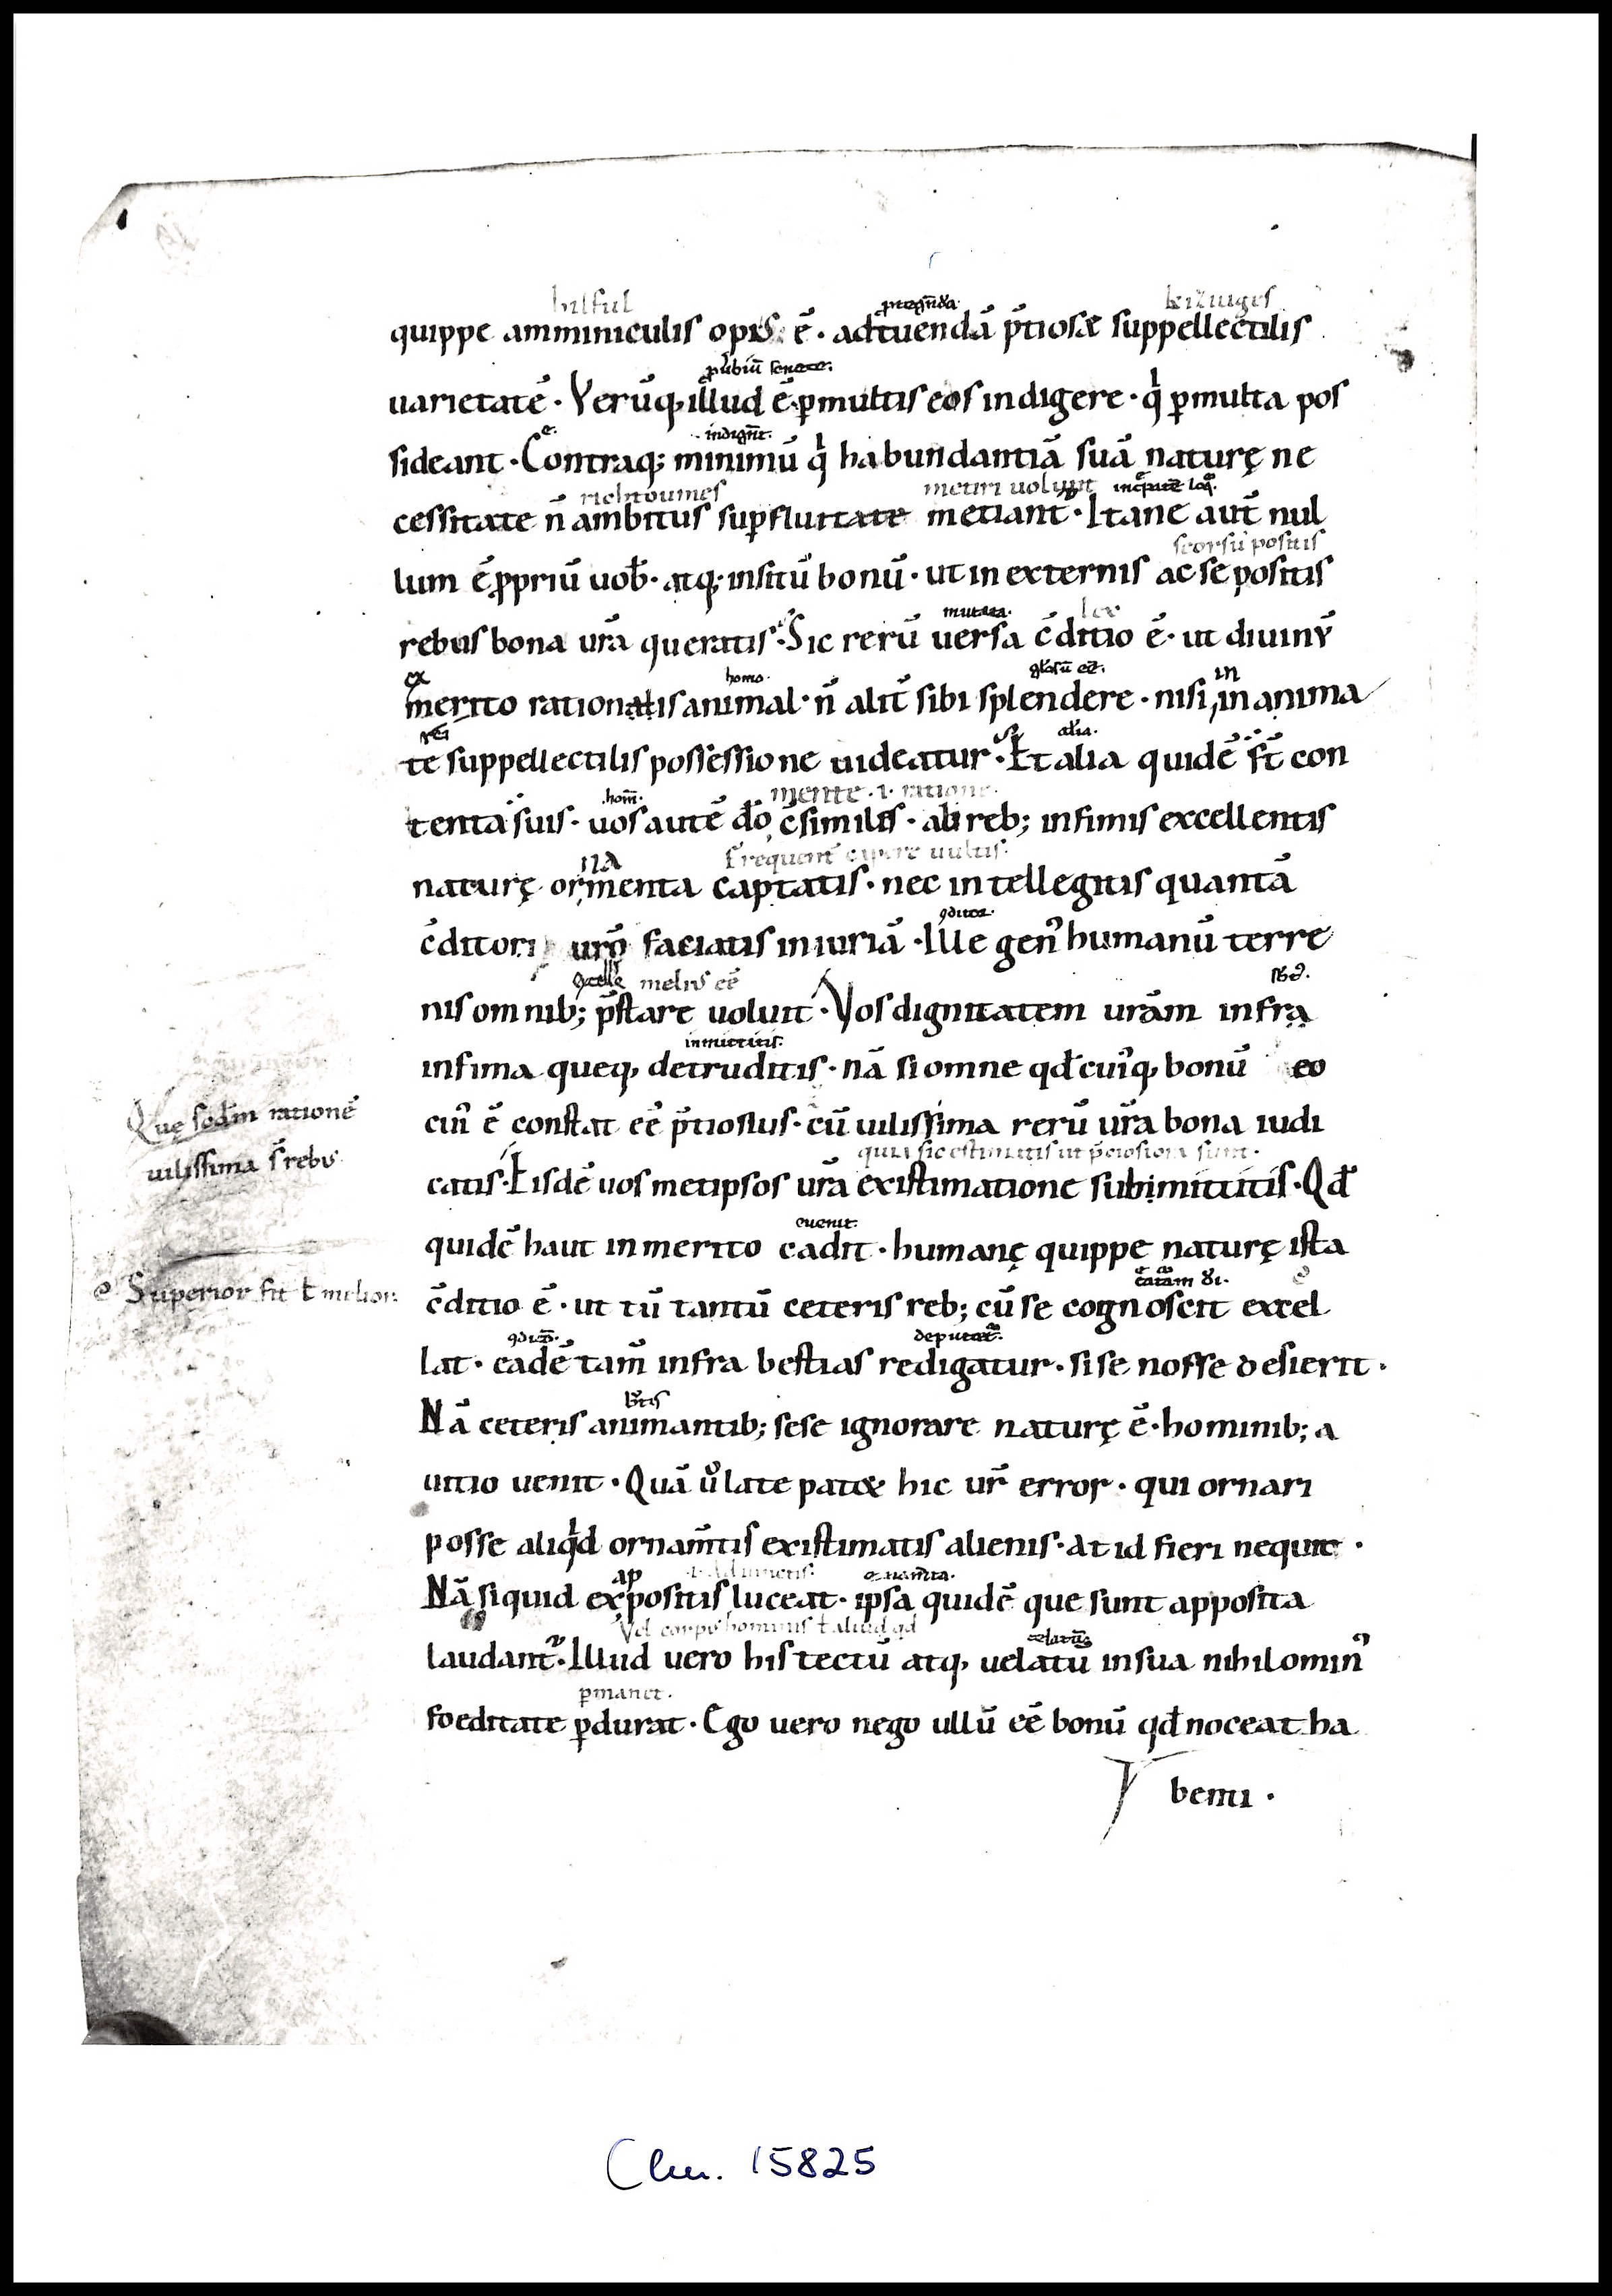 hilful
quippe amminiculis opus ē · ad tuendā p̄tiosæ suppellectilis
uarietatē · Verūq; illud ē p̱multis eos indigere · qⁱ p̱multa pos
indigN̄t.
sideant · Contraq; minimū qⁱ habundantiā suā naturę ne
metiri uolunt
cessitate n̄ ambitus sup̱fluitate metiant · Itane aut̄ nul
seorsū positis
lum ē p̱priū uob̄ · atq; insitū bonū · ut in externis ac se positis
mutata. lex
rebus bona ur̄a queratis · Sic rerū uersa c̄ditio ē · ut diuinꝰ
homo.
merito rationalis animal · n̄ alit̄ sibi splendere · nisi in anima
alia.
te suppellectilis possessione uideatur · Et alia quidē s̄t con
hom̄. mente · i · ratione.
tenta suis · uos autē do c̄similes · ab reb; infimis excellentis
na frequent̄ capere uultis.
naturę ormenta captatis · nec intellegitis quantā
c̄ditori uro faciatis iniuriā · Ille genꝰ humanū terre
melius eē
nis omnib; p̄stare uoluit · Vos dignitatem urām infra
inmittitis.
infima queq; detruditis · nā si omne qđ cuiꝰq; bonū eo
Quę sodm rationē
cuiꝰ ē constat eē p̄tiosius · cū uilissima rerū ur̄a bona iudi
uilissima s̄ rebus
quia sic estimatis ut p̄ciosiora sunt.
catis · Eisdē uos metipsos ur̄a existimatione submittitis · Qđ
euenit.
quidē haut inmerito cadit · humanę quippe naturę ista
Superior sit ł melior.
c̄ditio ē · ut tū tantū ceteris reb; cū se cognoscit excel
deputat̄.
lat · eadē tam̄ infra bestias redigatur · si se nosse desierit ·
Nā ceteris animantib; sese ignorare naturę ē · hominib; a
uitio uenit · Quā ůlate pat& hic ur̄ error · qui ornari
posse aliqⁱd ornam̄tis existimatis alienis · At id fieri nequit ·
ap ornam̄ta.
Nā si quid expositis luceat · ipsa quidē que sunt apposita
Vel corpus hominis ł aliud qđ
laudant̄ · Illud uero his tectū atq; uelatū in sua nihilominꝰ
p̱manet.
foeditate p̱durat · Ego uero nego ullū eē bonū qđ noceat ha
benti ·
Clm. 15825